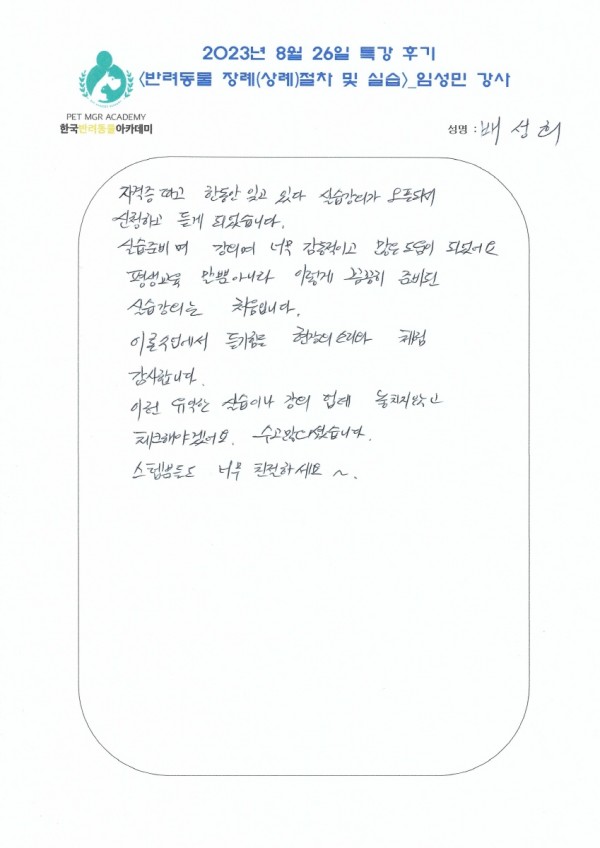 2023년 8월 26일 특강 후기
<반려동물 장례(상례)절차 및 실습>_임성민 강사
PET MGR ACADEMY
한국반려동물아카데미
성명 : 배성희
자격증 따고 한동안 잊고 있다 실습강의가 오픈되어
신청하고 듣게 되었습니다.
실습준비며 강의며 너무 감동적이고 많은 도움이 되었어요
평생교육 만뿐아니라 이렇게 꼼꼼히 준비된
실습강의는 처음입니다.
이론수업에서 듣기힘든 현장의 소리와 체험
감사합니다.
이런 유익한 실습이나 강의 업데 놓치지않고
체크해야겠어요. 수고많으셨습니다.
스텝분들도 너무 친절하세요~.